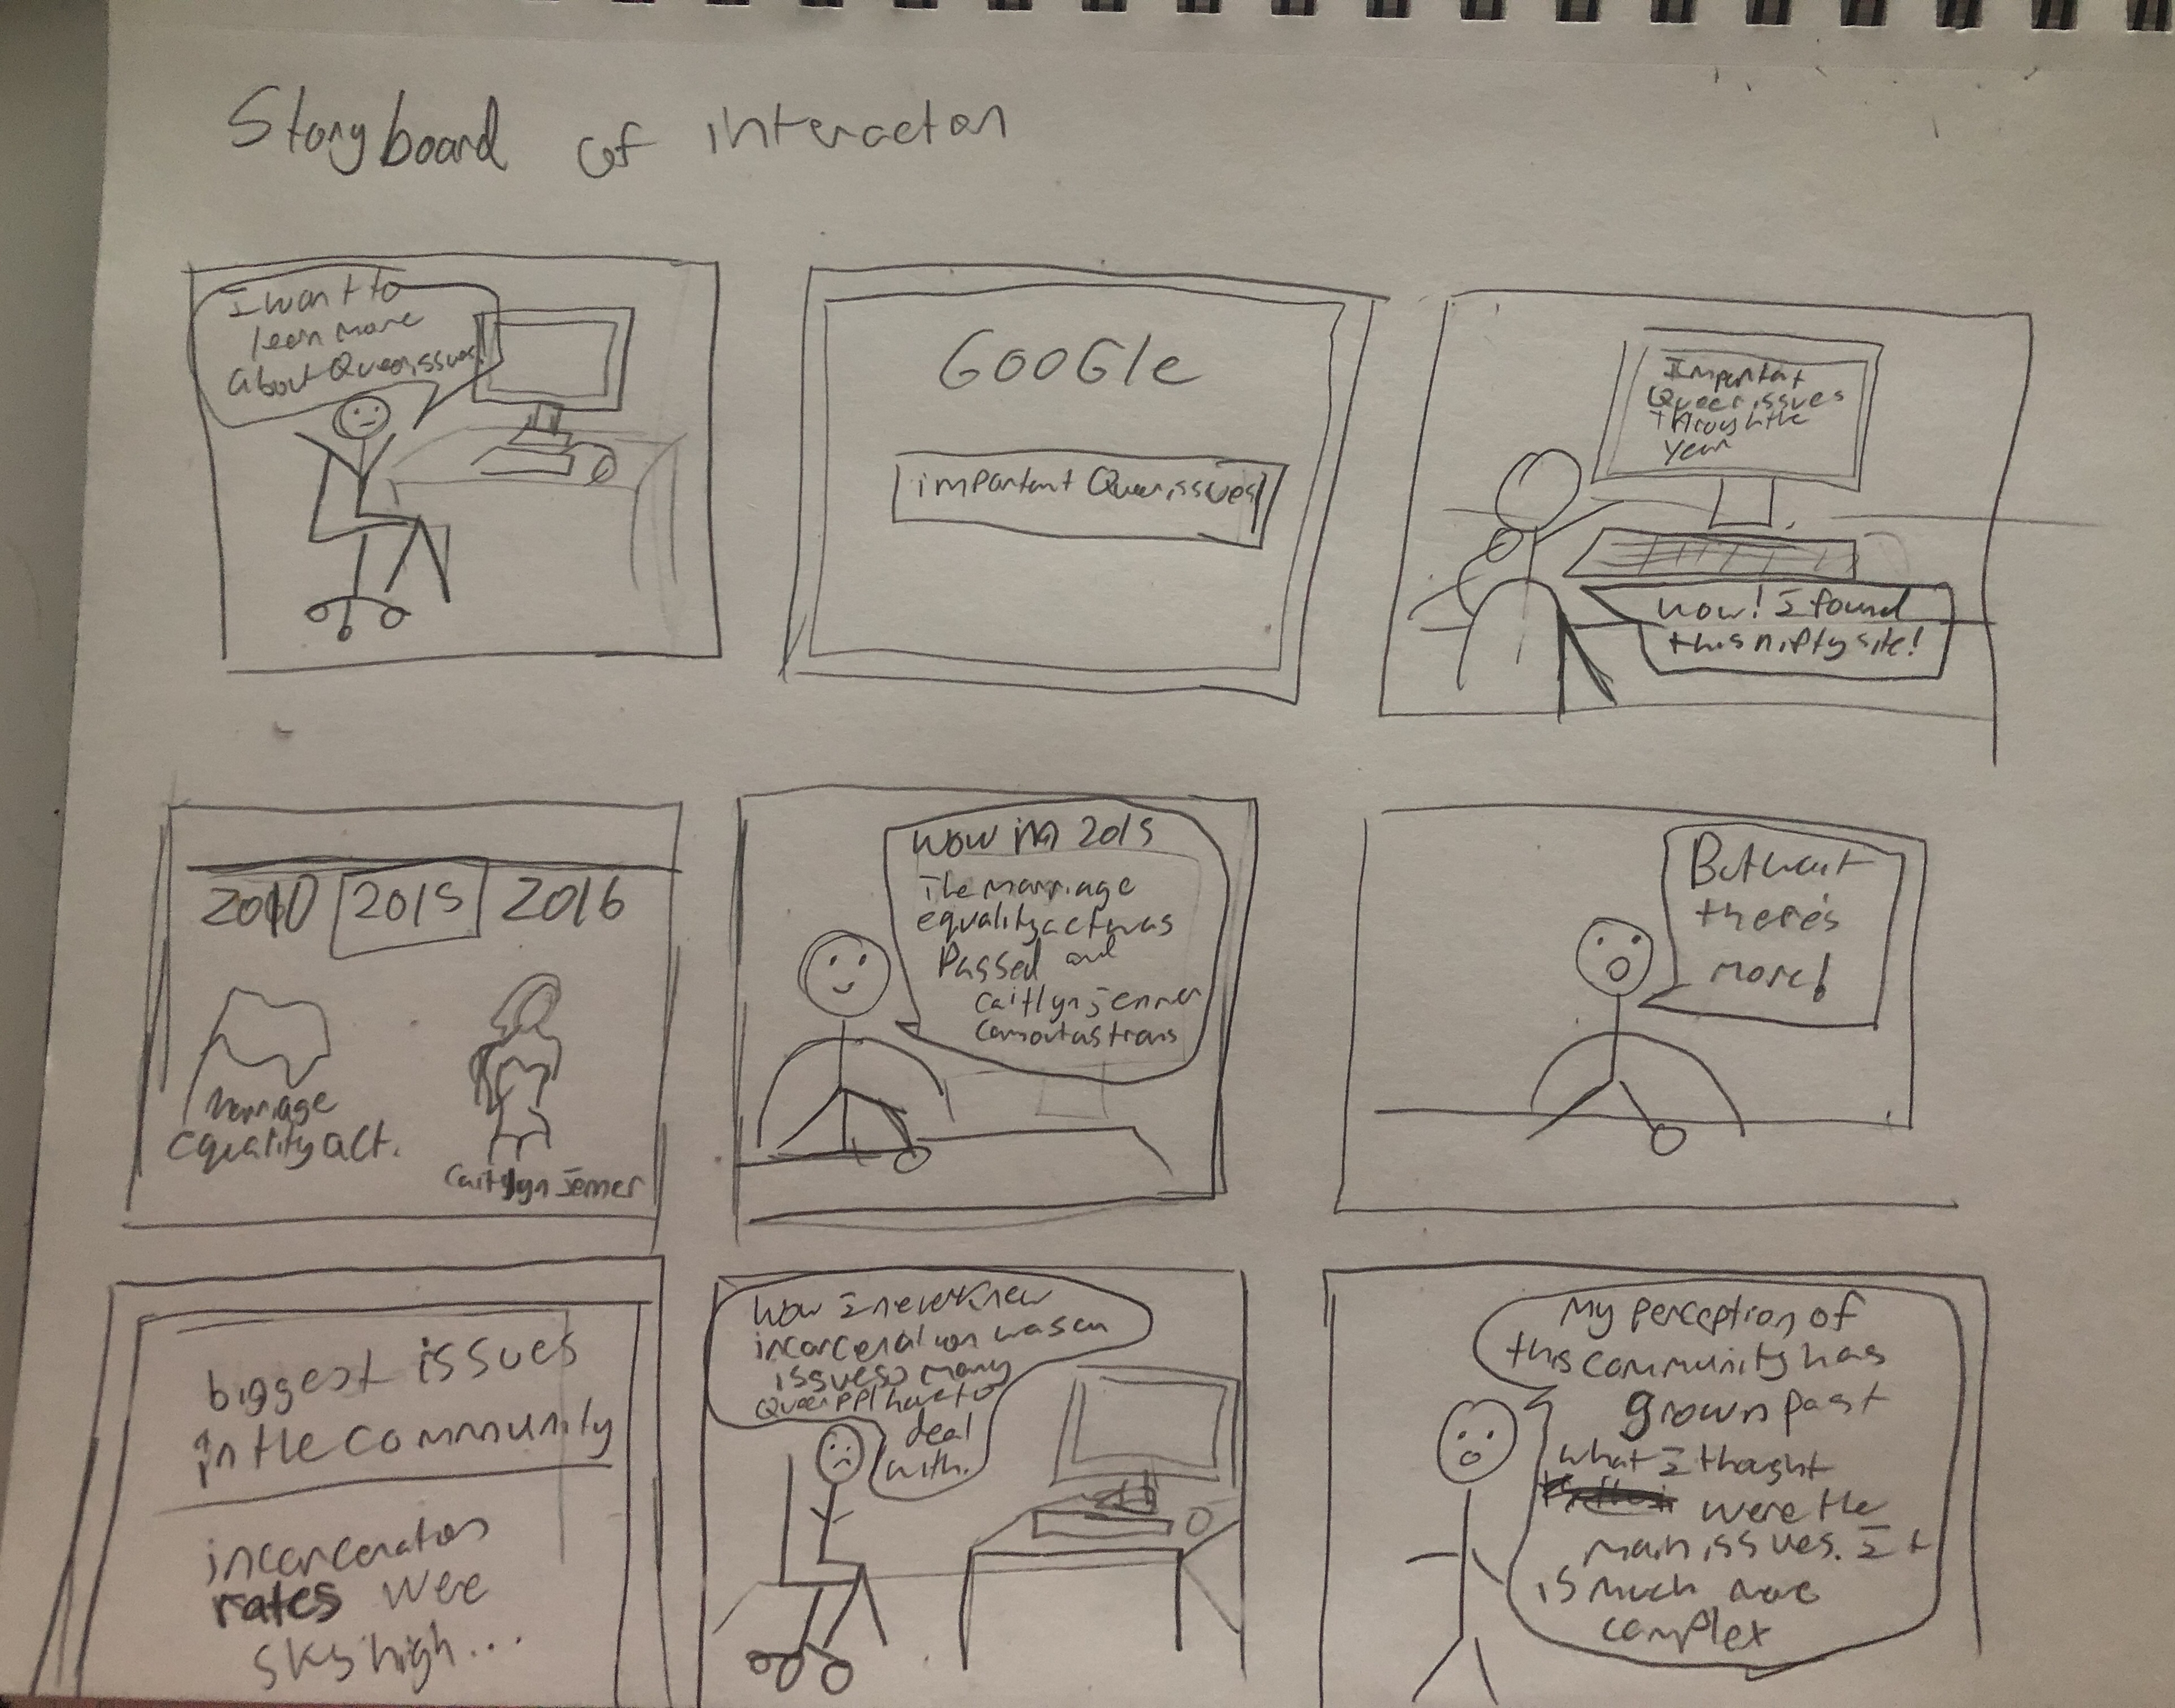 Storyboard of interacton
I want to
learn more
about Queer issues!
GOOGle
important Queer issues
Important
Queer issues
through the
year
Wow! I found
this nifty site!
2010 2015 2016
Marriage
equality act.
Caitlyn Jenner
Wow in 2015
The marriage
equality act was
Passed and
Caitlyn Jenner
Came out as trans
But wait
there's
more!
biggest issues
in the community
incarceration
rates were
sky high...
Wow I never knew
incarceration was an
issue so many
Queer ppl have to
deal
with.
My perception of
this community has
grown past
what I thought
were the
main issues. It
is much more
complex